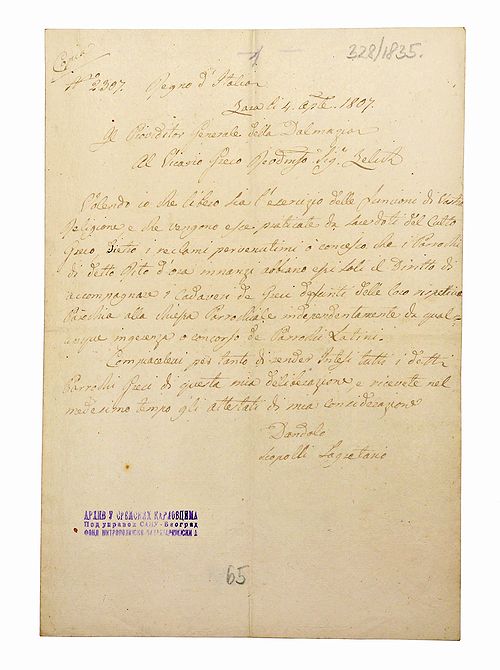 Copia
328/1835.
N.ro 2307. Regno d'Italia
Zara li 4. 1807.
Il Proveditor Generale della Dalmazia
Al Vicario Greco Sig.r Zelich
Volendo io che libero sia l'esercizio delle Funzioni di
Religione e che vengono esse praticate da Sacerdoti del Culto
Greco, dietro i reclami pervenutimi ò concesso che i Parrochi
di detto Rito d'ora innanzi abbiano essi soli il Diritto di
accompagnare i Cadaveri de Greci defonti delle loro rispettive
Parochia alla chiesa Parrochiale independentemente da qual-
unque ingerenza o concorso de Parrochi Latini.
Compiacetevi per tanto di render intesi tutti i detti
Parrochi Greci di questa mia deliberazione e ricevete nel
medesimo tempo gli attestati di mia considerazione
Dandolo
Segretario
АРХИВ У СРЕМСКИХ КАРЛОВЦИМА
Под управом САНУ-Београд
ФОНД МИТРОПОЛИЈСКО-ПАТРИЈАРШИЈСКИ А
65